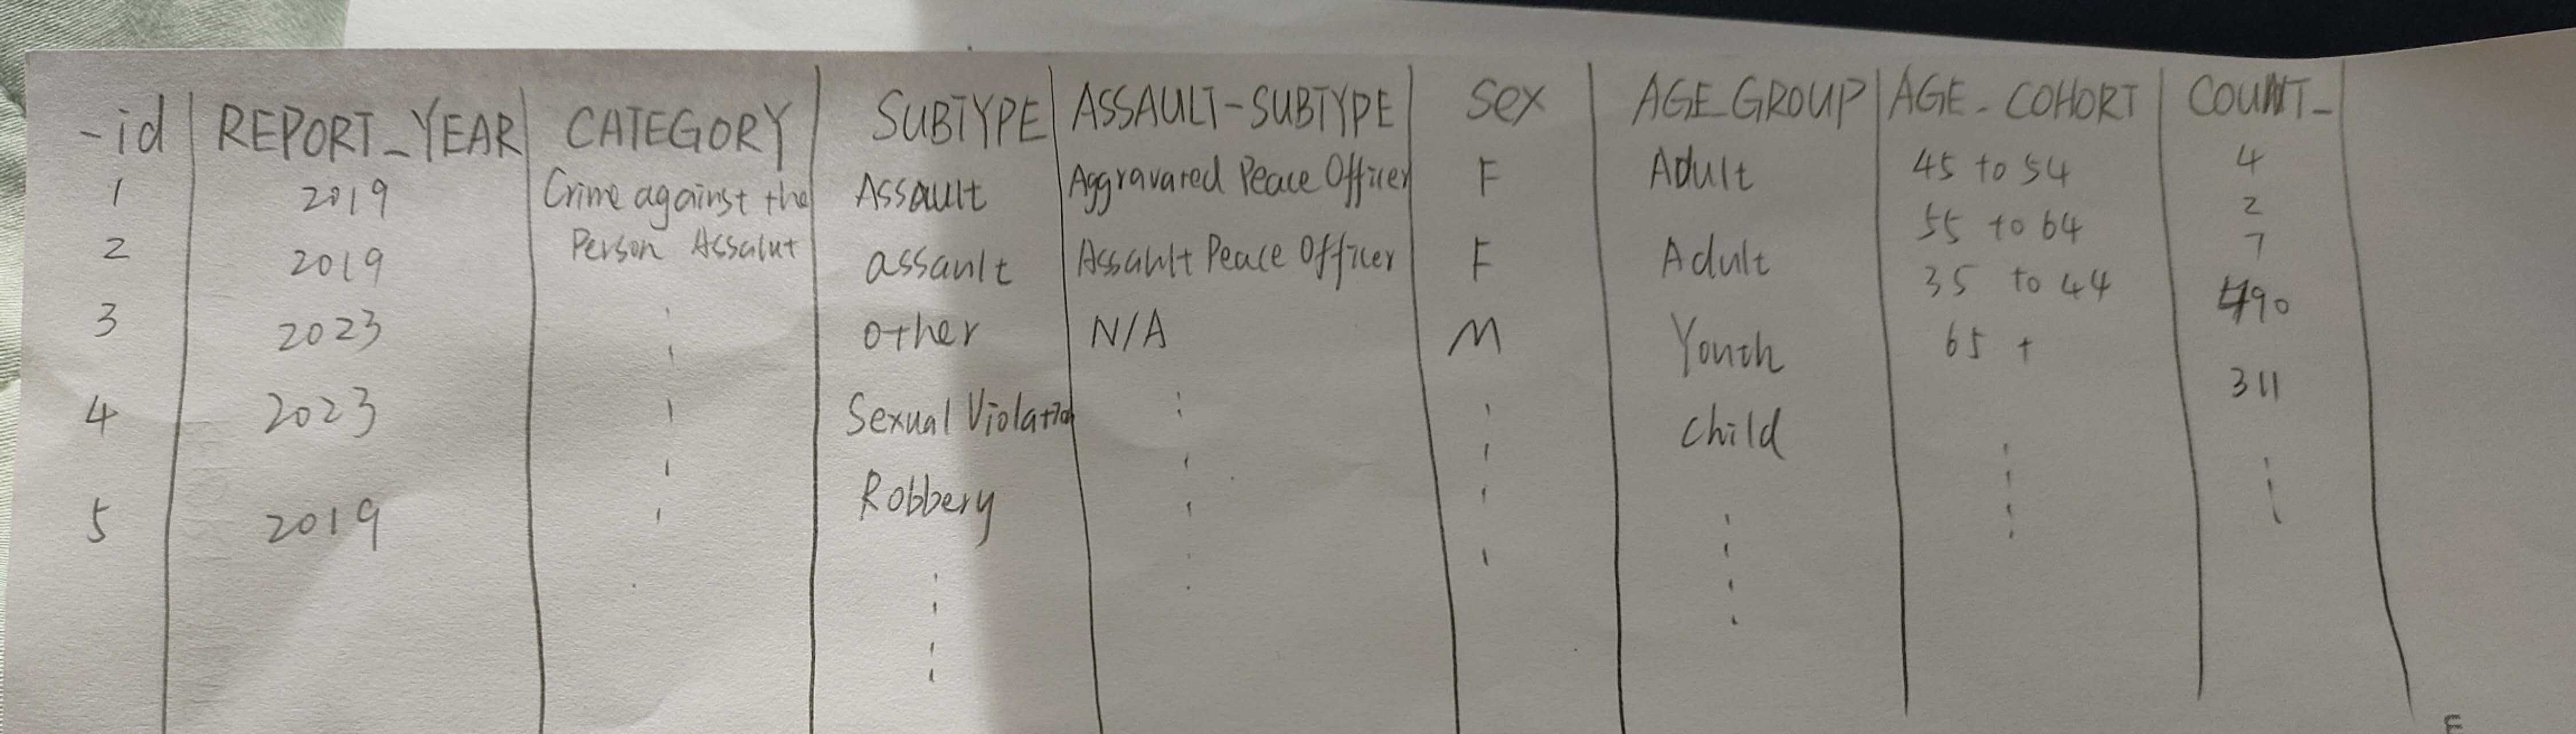 -id REPORT_YEAR CATEGORY SUBTYPE ASSAULT-SUBTYPE Sex AGE_GROUP AGE_COHORT COUNT_
1 2019 Crime against the Assault Aggravared Peace Officer F Adult 45 to 54 4
2 2019 Person Assalut assault Assault Peace Officer F Adult 55 to 64 2
3 2023 other N/A M Youth 35 to 44 7
4 2023 Sexual Violation Child 65 + 490
5 2019 Robbery 311
F